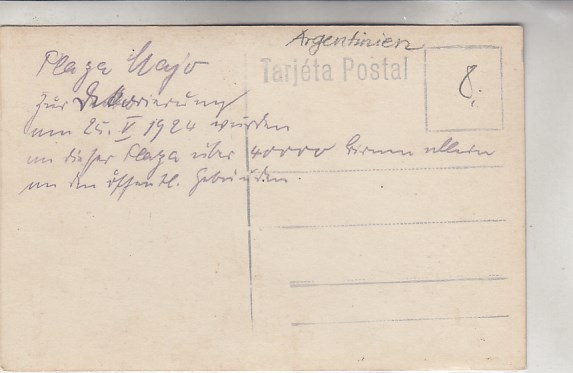 Argentinien
Tarjéta Postal
8.
Plaza Majo
Zur Dekorierung
am 25. V 1924 wurden
an dieser Plaza über 40000 Birnen allein
an den öffentl. Gebäuden.